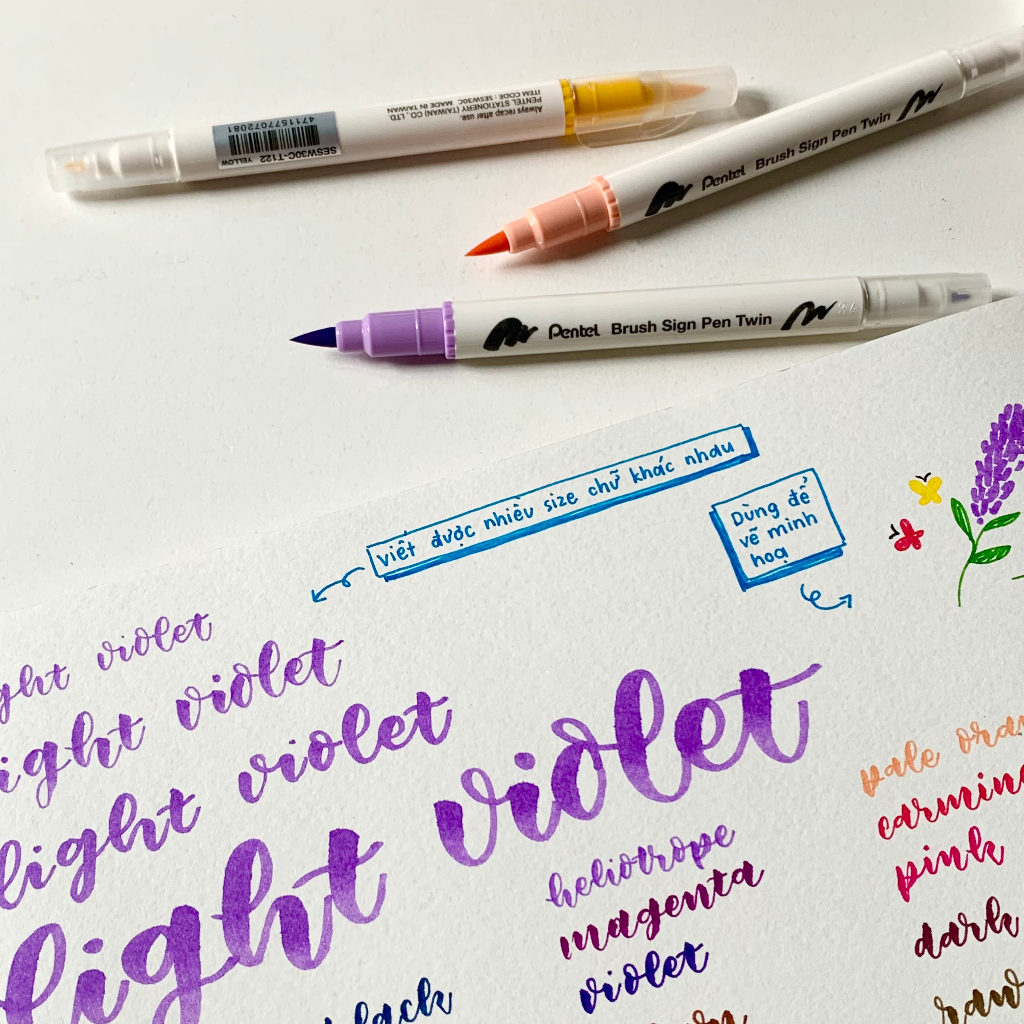 Always recap after use.
PENTEL STATIONERY (TAIWAN) CO., LTD.
ITEM CODE : SESW30C MADE IN TAIWAN
SESW30C-T122 YELLOW
4711577072081
Pentel Brush Sign Pen Twin
Pentel Brush Sign Pen Twin
viết được nhiều size chữ khác nhau
Dùng để
vẽ minh
hoạ
violet
light violet
light violet
light violet
heliotrope
magenta
violet
black
pale
carmine
pink
dark
raw